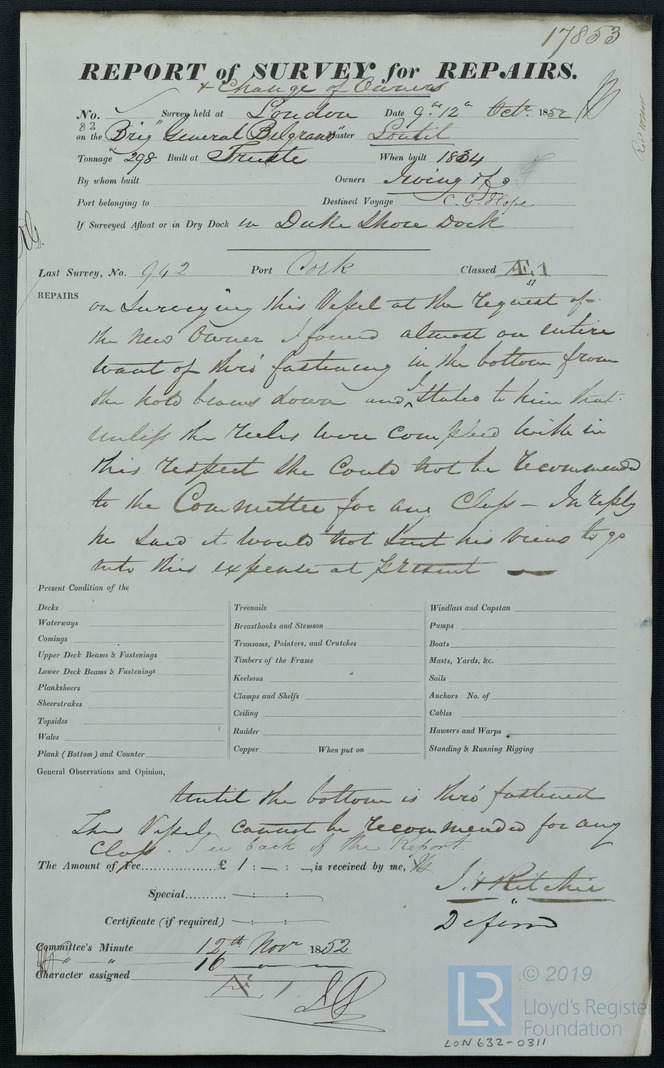 17853
REPORT of SURVEY for REPAIRS.
& Change of Owners
No. Survey held at London Date 9th 12th Octr 1852
82
on the Brig "General Belgrano" Master
Tonnage 298 Built at Trieste When built 1834
By whom built Owners Irving
Port belonging to Destined Voyage C. G. Hope
If Surveyed Afloat or in Dry Dock in Duke Shore Dock
Last Survey, No. 942 Port Cork Classed Æ1
51
REPAIRS on Surveying this Vessel at the request of
the New Owner I found almost an entire
want of thro' fastening in the bottom from
the hold beams down and I stated to him that
unless the rules were complied with in
this respect she could not be recommended
to the Committee for any Class – In reply
he said it would not suit his views to go
into this expense at present
Present Condition of the
Decks
Waterways
Comings
Upper Deck Beams & Fastenings
Lower Deck Beams & Fastenings
Planksheers
Sheerstrakes
Topsides
Wales
Plank (Bottom) and Counter
Treenails
Breasthooks and Stemson
Transoms, Pointers, and Crutches
Timbers of the Frame
Keelsons
Clamps and Shelfs
Ceiling
Rudder
Copper When put on
Windlass and Capstan
Pumps
Boats
Masts, Yards, &c.
Sails
Anchors No. of
Cables
Hawsers and Warps
Standing & Running Rigging
General Observations and Opinion,
Until the bottom is thro' fastened
This Vessel cannot be recommended for any
Class. See back of the Report.
The Amount of Fee £ 1 : – : – is received by me,
Special
Certificate (if required)
J. H. Ritchie
Deferred
Committee's Minute 12th Novr 1852
" " 16
Character assigned Æ 1
© 2019
LR
Lloyd's Register
Foundation
LON 632-0311